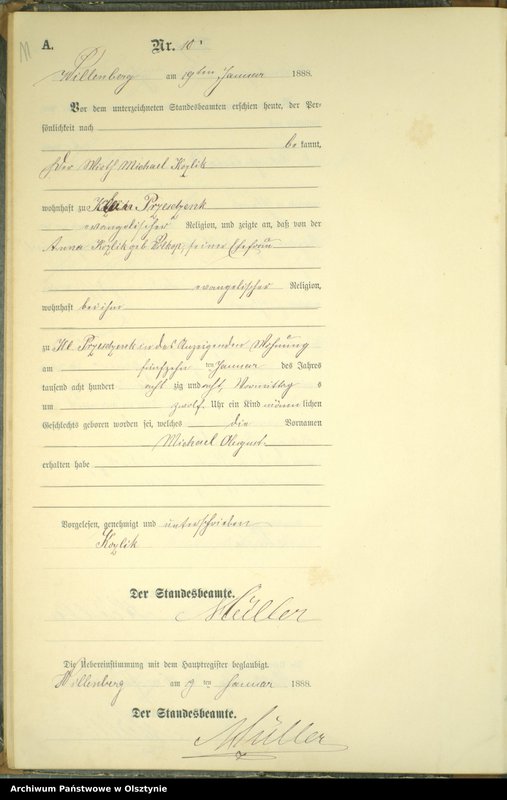 A. Nr. 10.
Willenberg am 19ten Januar 1888.
Vor dem unterzeichneten Standesbeamten erschien heute, der Per-
sönlichkeit nach
be kannt,
der Wirth Michael Kozlik
wohnhaft zu Klein Przesdzenk
evangelischer Religion, und zeigte an, daß von der
Anna Kozlik geb. seiner Ehefrau
evangelischer Religion,
wohnhaft bei ihm
zu Kl. Przesdzenk in des Anzeigenden Wohnung
am fünfzehn ten Januar des Jahres
tausend acht hundert acht zig und acht, Vormittag s
um zwölf Uhr ein Kind männlichen
Geschlechts geboren worden sei, welches die Vornamen
Michael August
erhalten habe
Vorgelesen, genehmigt und unterschrieben
Kozlik
Der Standesbeamte.
Müller
Die Uebereinstimmung mit dem Hauptregister beglaubigt.
Willenberg am 19 ten Januar 1888.
Der Standesbeamte.
Müller
Archiwum Państwowe w Olsztynie